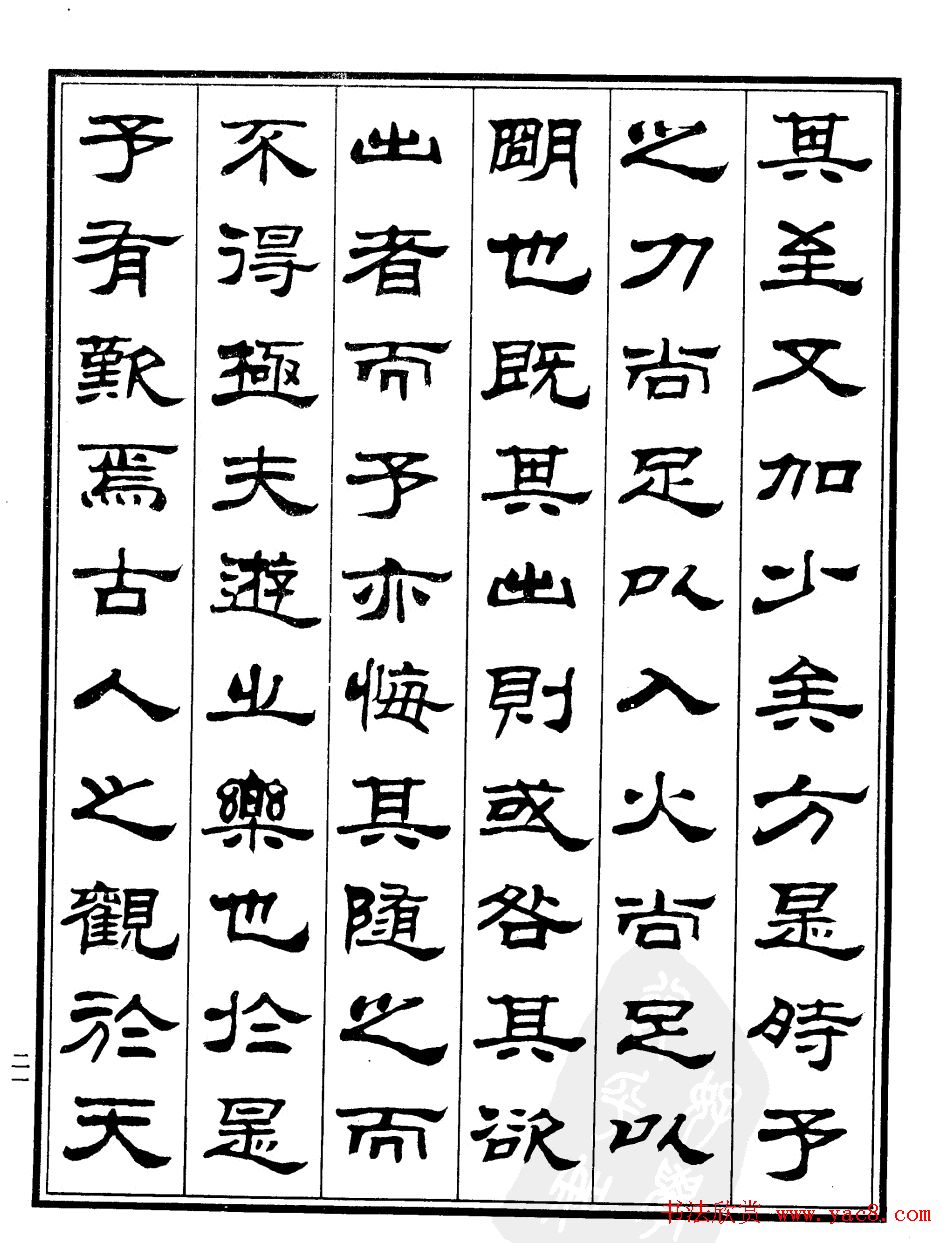 其至又加少矣方是時予
之力尚足以入火尚足以
朙也既其出則或咎其欲
出者而予亦悔其隨之而
不得極夫遊之樂也於是
予有歎焉古人之觀於天
二一
书法欣赏 www.yac8.com